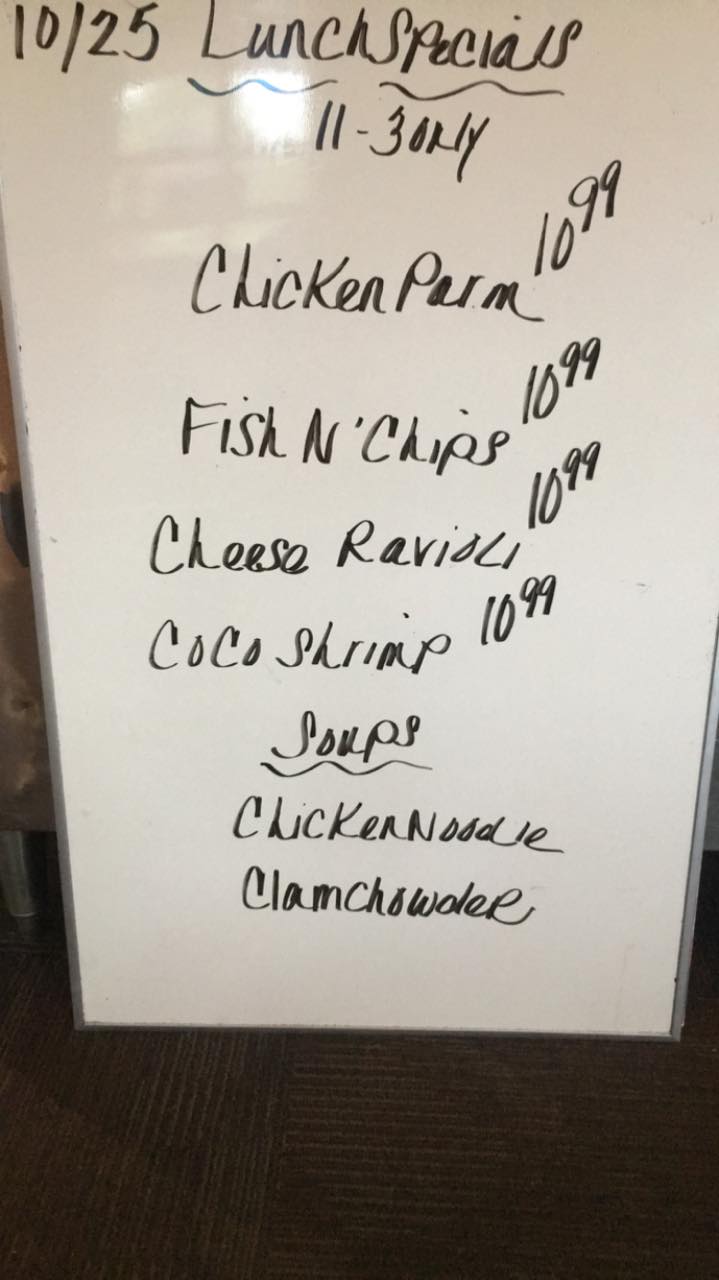 10/25 Lunch Specials
11-3 only
Chicken Parm 10 99
Fish N' Chips 10 99
Cheese Ravioli 10 99
CoCo Shrimp 10 99
Soups
Chicken Noodle
Clam Chowder